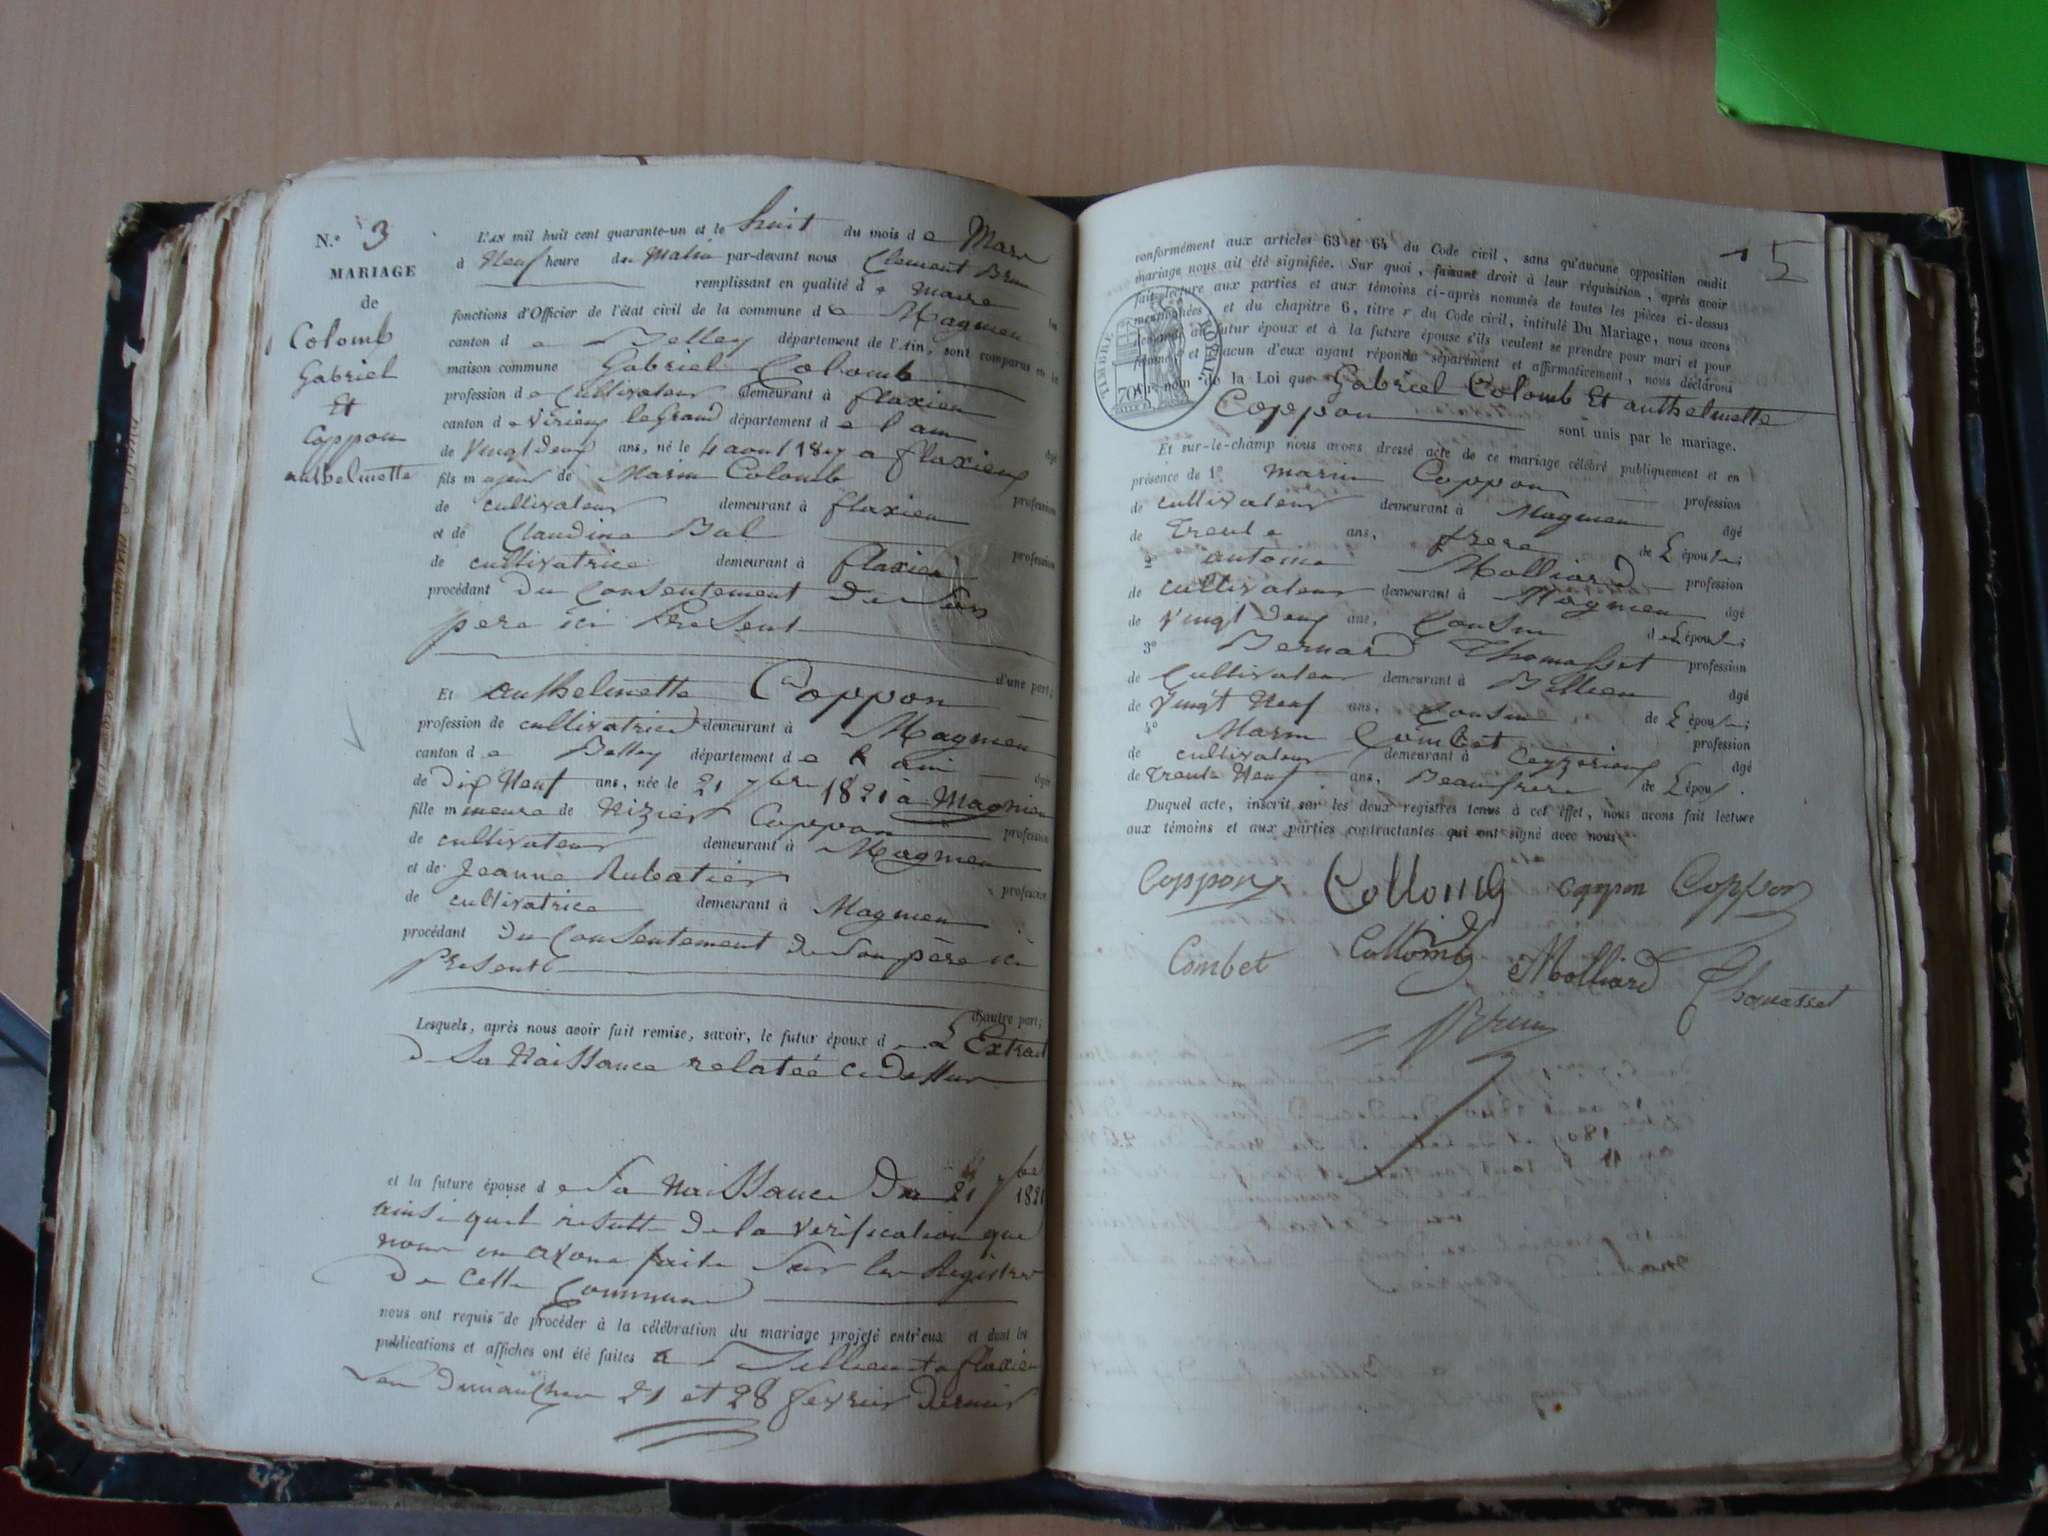 N.º 3
MARIAGE
de
Colomb
Gabriel
Et
Coppon
anthelmette
L'an mil huit cent quarante-un et le huit du mois de Mars
à Neuf heure du Matin par-devant nous Clement Brun
remplissant en qualité de Maire
fonctions d'Officier de l'état civil de la commune de Magnieu les
canton de Belley département de l'Ain, sont comparus en la
maison commune Gabriel Colomb
profession de Cultivateur demeurant à flaxieu
canton de Virieu le Grand département de l'ain âgé
de Vingt Deux ans, né le 4 aout 18 a flaxieu
fils majeur de Marin Colomb profession
de cultivateur demeurant à flaxieu
et de Claudine Bal profession
de cultivatrice demeurant à flaxieu
procédant Du Consentement De Son
pere ici Present
d'une part;
Et anthelmette Coppon
profession de cultivatrice demeurant à Magnieu
canton de Belley département de l'ain âgée
de Dix Neuf ans, née le 21 7bre 1821 à Magnieu
fille mineure de Nizier Coppon profession
de cultivateur demeurant à Magnieu
et de Jeanne Rubatier profession
de cultivatrice demeurant à Magnieu
procédant du Consentement de Son père ici
Present
d'autre part;
Lesquels, après nous avoir fait remise, savoir, le futur époux de L'Extrait
de Sa Naissance relatée ci Dessus
et la future épouse de Sa Naissance Du 21 7bre 1821
ainsi quil resulte De la Verification que
nous en avons faite Sur les Registres
De Cette Commune
nous ont requis de procéder à la célébration du mariage projeté entr'eux et dont les
publications et affiches ont été faites a Billieu et a flaxieu
Les Dimanches 21 et 28 fevrier Dernier
15
conformément aux articles 63 et 64 du Code civil, sans qu'aucune opposition audit
mariage nous ait été signifiée. Sur quoi, faisant droit à leur réquisition, après avoir
fait lecture aux parties et aux témoins ci-après nommés de toutes les pièces ci-dessus
mentionnées et du chapitre 6, titre v du Code civil, intitulé Du Mariage, nous avons
demandé au futur époux et à la future épouse s'ils veulent se prendre pour mari et pour
femme et chacun d'eux ayant répondu séparément et affirmativement, nous déclarons
au nom de la Loi que Gabriel Colomb Et anthelmette
Coppon sont unis par le mariage.
TIMBRE ROYAL
70
Et sur-le-champ nous avons dressé acte de ce mariage célébré publiquement et en
présence de 1º Marin Coppon profession
de cultivateur demeurant à Magnieu âgé
de Trente ans, frere de L'épouse;
2º antoine Molliard profession
de cultivateur demeurant à Magnieu âgé
de Vingt Deux ans, Cousin de L'épouse;
3º Bernard Thomasset profession
de Cultivateur demeurant à Billieu âgé
de Vingt Neuf ans, Cousin de L'épouse;
4º Marin Combet profession
de cultivateur demeurant à Ceyzerieux âgé
de Trente Neuf ans, Beaufrere de L'époux.
Duquel acte, inscrit sur les deux registres tenus à cet effet, nous avons fait lecture
aux témoins et aux parties contractantes qui ont signé avec nous
Coppon Collomb coppon Coppon
Combet Collomb Molliard Thomasset
Brun